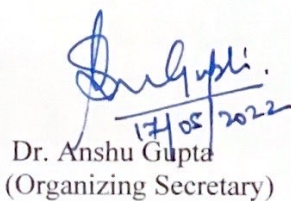 17/05/2022
Dr. Anshu Gupta
(Organizing Secretary)